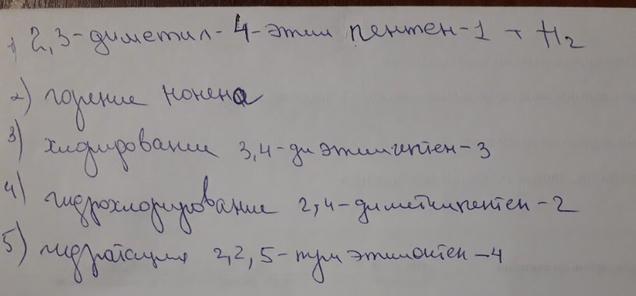 1) 2,3-диметил-4-этил пентен-1 + H2
2) горение нонена
3) хлорирование 3,4-диэтилгептен-3
4) гидрохлорирование 2,4-диметилпентен-2
5) гидратация 2,2,5-триэтилоктен-4